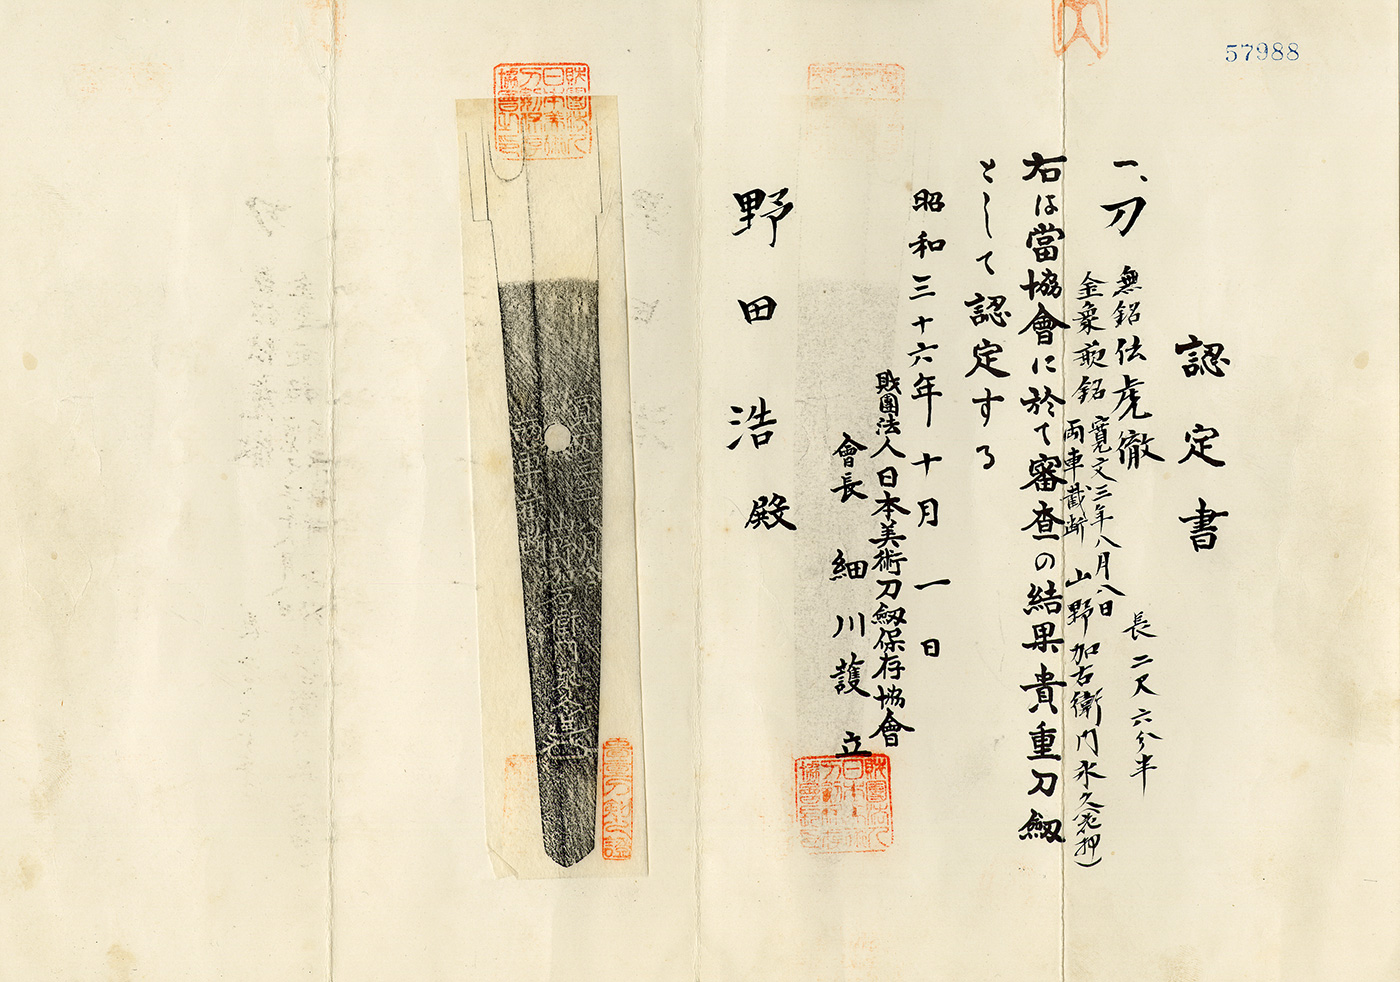 57988
認定書
一、刀 無銘伝虎徹 長二尺六分半
金象嵌銘 寛文三年八月八日
両車截断 山野加右衛門永久(花押)
右は當協會に於て審査の結果貴重刀劔
として認定する
昭和三十六年十月一日
財團法人日本美術刀劔保存協會
會長 細川護立
野田浩殿
財團法人日本美術刀劔保存協會之印